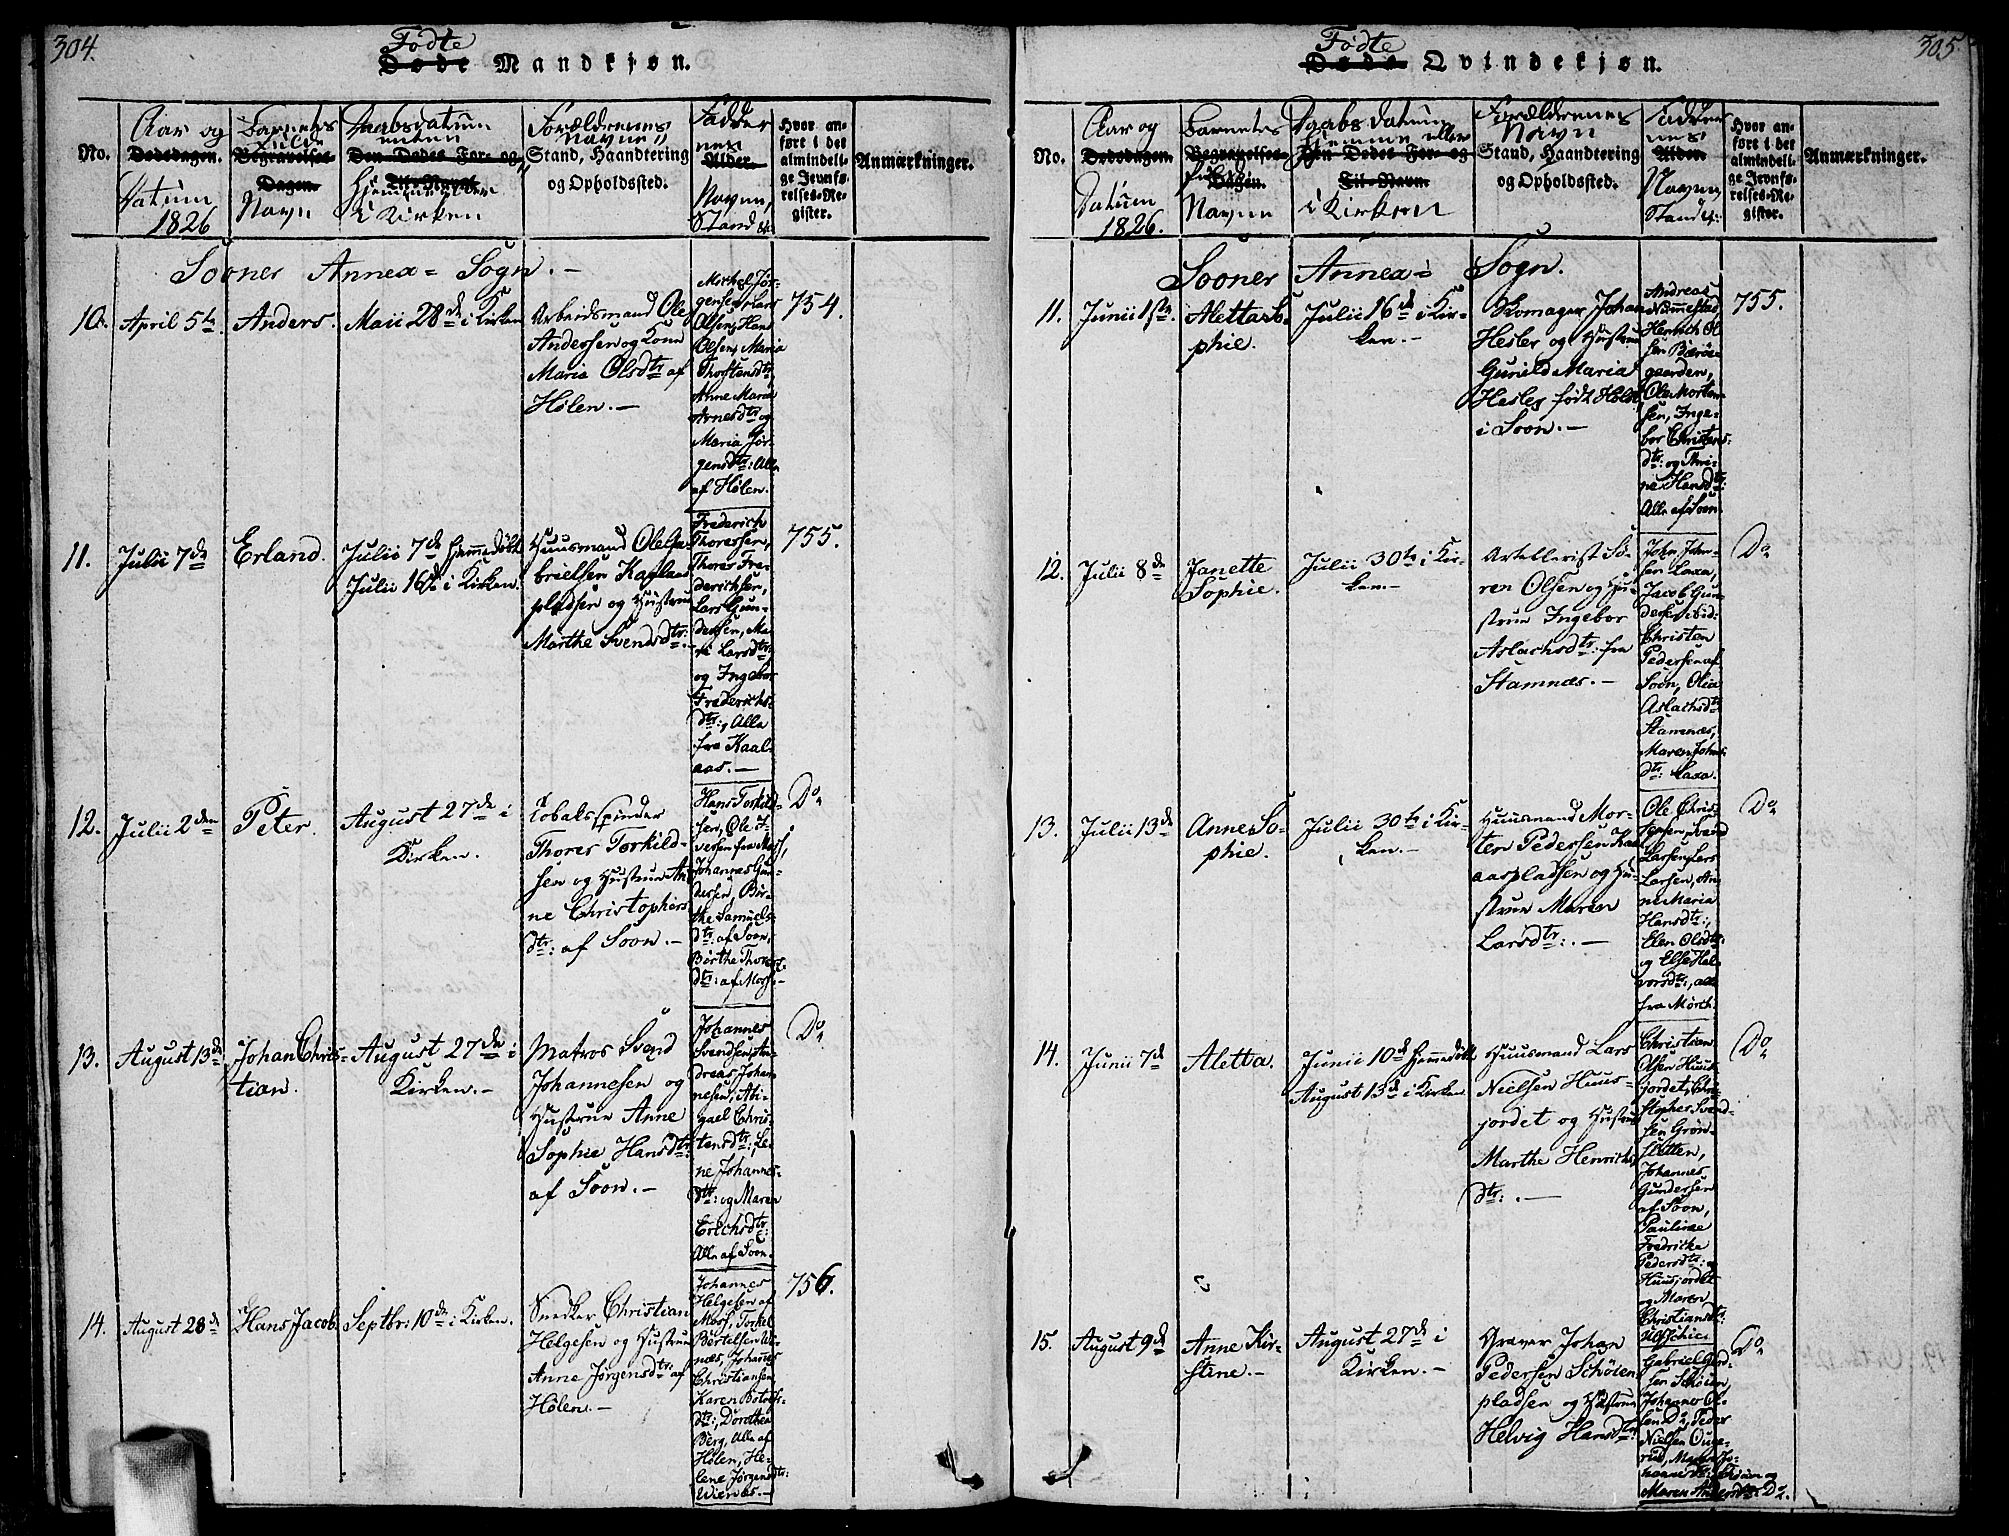 304.
Fødte
Døde Mandkjøn.
No.
Aar og
Dødsdagen.
Datum
1826
Barnets
fulde
Begravelses-
Dagen.
Navn
Daabsdatum
enten
Den Dødes For- og
Til-Navn.
Hiemme eller
i Kirken
Forældrenes
Navne,
Stand, Haandtering
og Opholdssted.
Fadder
nes
Alder.
Navne,
Stand &c
Hvor an-
ført i det
almindeli-
ge Jevnfø-
relses-Re-
gister.
Anmærkninger.
Sooner Annex = Sogn. -
10.
April 5te
Anders.
Maii 28de i Kirken
Arbeidsmand Ole
Andersen og Kone
Maria Olsdtr af
Hølen. -
Michel Jør-
gensen, Lars
Olsen, Hans
Olsen, Maria
Thorstensdtr,
Anne Maria
Arnesdtr og
Maria Jør-
gensdtr: Alle
af Hølen.
754.
11.
Julii 7de
Erland.
Julii 7de Hjemmedøbt
Julii 16de i Kirken.
Huusmand Ole Ga-
brielsen Kaalaas
pladsen og Hustrue
Marthe Svendsdtr: -
Frederich
Thoresen,
Thores Fre-
derichsen,
Lars Gun-
dersen, Ma-
ri Larsdtr
og Ingebor
Frederichs-
dtr:, Alle
fra Kaal-
aas. -
755.
12.
Julii 2den
Peter.
August 27de i
Kirken.
Tobakspinder
Thores Torkild-
sen og Hustrue An-
ne Christophers
dtr: af Soon. -
Hans Torkild-
sen, Ole I-
versen fra Moss,
Johannes Gun-
dersen, Bir-
the Samuels-
dtr: af Soon,
Birthe Thores-
dtr: af Moss. -
Do
13.
August 13de
Johan Chris-
tian.
August 27de i
Kirken. -
Matros Svend
Johannesen og
Hustrue Anne
Sophie Hansdtr:
af Soon. -
Johannes
Svendsen, An-
dreas Johan-
nesen, Abi-
gael Chris-
tensdtr:, Le-
ne Johannes-
dtr: og Maren
Erichsdtr:
Alle af Soon.
Do
14.
August 28de
Hans Jacob.
Septbr: 10de i Kirken.
Snedker Christian
Helgesen og Hustrue
Anne Jørgensdtr af
Hølen. -
Johannes
Helgesen af
Moss, Torkel
Bertelsen Wi-
næs, Johannes
Christiansen,
Karen Botolfs-
dtr:, Dorothea
Berg, Alle af
Hølen, He-
lene Jørgensdtr:
Wienæs. -
756.
305
Fødte
Døde Qvindekjøn.
No.
Aar og
Dødsdagen.
Datum
1826.
Barnets
Begravelses-
fulde
Dagen.
Navne
Daabsdatum
hiemme eller
Den Dødes For- og
Til-Navn.
i Kirken
Forældrenes
Navn
Stand, Haandtering
og Opholdssted.
Fadder
nes
Alder.
Navne,
Stand &c:
Hvor an-
ført i det
almindeli-
ge Jevnfø-
relses-Re-
gister.
Anmærkninger.
Sooner Annex = Sogn.
11.
Junii 1ste
Aletta So-
phie.
Julii 16de i Kir-
ken. -
Skomager Johan
Hesler og Hustrue
Gunild Maria
Hesler født Holst
i Soon. -
Andreas
Nummestad,
Henrich Ol-
sen Barøe-
gaarden,
Ole Morten-
sen, Inge-
bor Christens-
dtr: og Thri-
ne Hansdtr:
Alle af Soon.
755.
12.
Julii 8de
Janette
Sophie.
Julii 30te i Kir-
ken. -
Artellerist Sø-
ren Olsen og Hu-
strue Ingebor
Aslachsdtr: fra
Stamnæs. -
John John-
sen Laxa,
Jacob Gun-
dersen ibid:
Christen
Pedersen af
Soon, Olea
Aslachsdtr
Stamnæs,
Maren Johns-
dtr: Laxa.
Do
13.
Julii 13de
Anne So-
phie.
Julii 30te i Kir-
ken. -
Huusmand Mor-
ten Pedersen Kaal-
aaspladsen og Hu-
strue Maren
Larsdtr: . -
Ole Chris-
tensen, Svend
Larsen, Lars
Larsen, An-
ne Maria
Hansdtr:,
Elen Olsdtr:
og Else Hal-
vorsdtr:, alle
fra Mørch.
Do
14.
Junii 7de
Aletta.
Junii 10de Hjemmedøbt
August 13de i Kirken
Huusmand Lars
Nielsen Huus-
jordet og Hustrue
Marthe Henrichs
dtr: . -
Christian
Olsen Huus-
jordet, Chri-
stopher Svend-
sen Grøn-
sletten,
Johannes
Gundersen
af Soon,
Pauline
Fredricka
Pedersdtr: og
Huusjordet
og Maren
Christiansdtr:
Do
15.
August 9de
Anne Kir-
stine. -
August 27de i
Kirken. -
Væver Johan
Pedersen Schøien
pladsen og Hustrue
Helvig Hansdtr:
Johannes Ol-
sen Do, Peder
Nielsen
Maren Andersdtr: Do.
Do